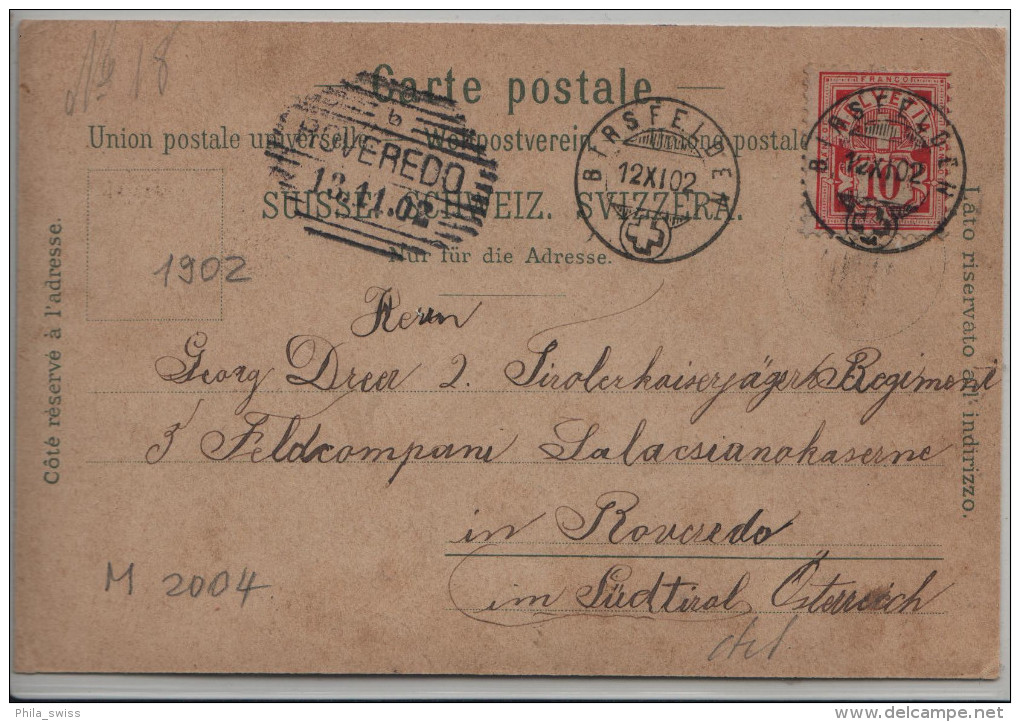 No 18
Carte postale
FRANCO
HELVETIA
10
Union postale universelle. Weltpostverein. Unione postale
b
ROVEREDO
13.11.02
BIRSFELDEN
12 XI 02
BIRSFELDEN
12 XI 02
SUISSE. SCHWEIZ. SVIZZERA.
Nur für die Adresse.
Côté réservé à l'adresse.
Lato riservato all' indirizzo.
1902
Herrn
Georg Dreer 2. Tirolerkaiserjäger Regiment
5 Feldcompani Salacsianokaserne
in Roveredo
im Südtirol Österreich
M 2004.
Phila_swiss
www.delcampe.net